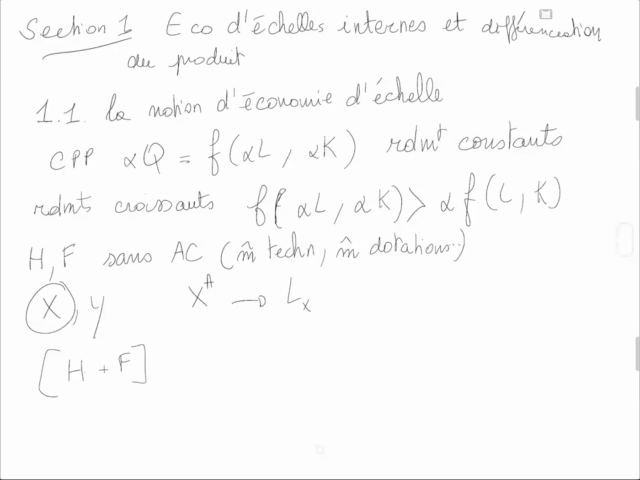 Section 1 Eco d'échelles internes et différenciation
du produit
1.1. la notion d'économie d'échelle
CPP αQ = f(αL, αK) rdmt constants
rdmts croissants f(αL, αK) > αf(L, K)
H, F sans AC (m̂ techn, m̂ dotations..)
X, y X^A → L_x
[H + F]